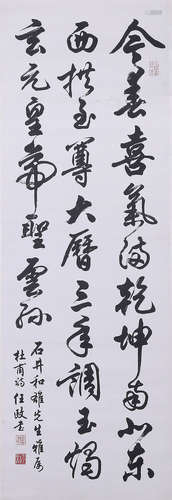 今春喜氣滿乾坤南北東
西拱至尊大曆三年調玉燭
玄元皇帝聖雲孫
石井和雄先生雅屬
杜甫詩 任政書